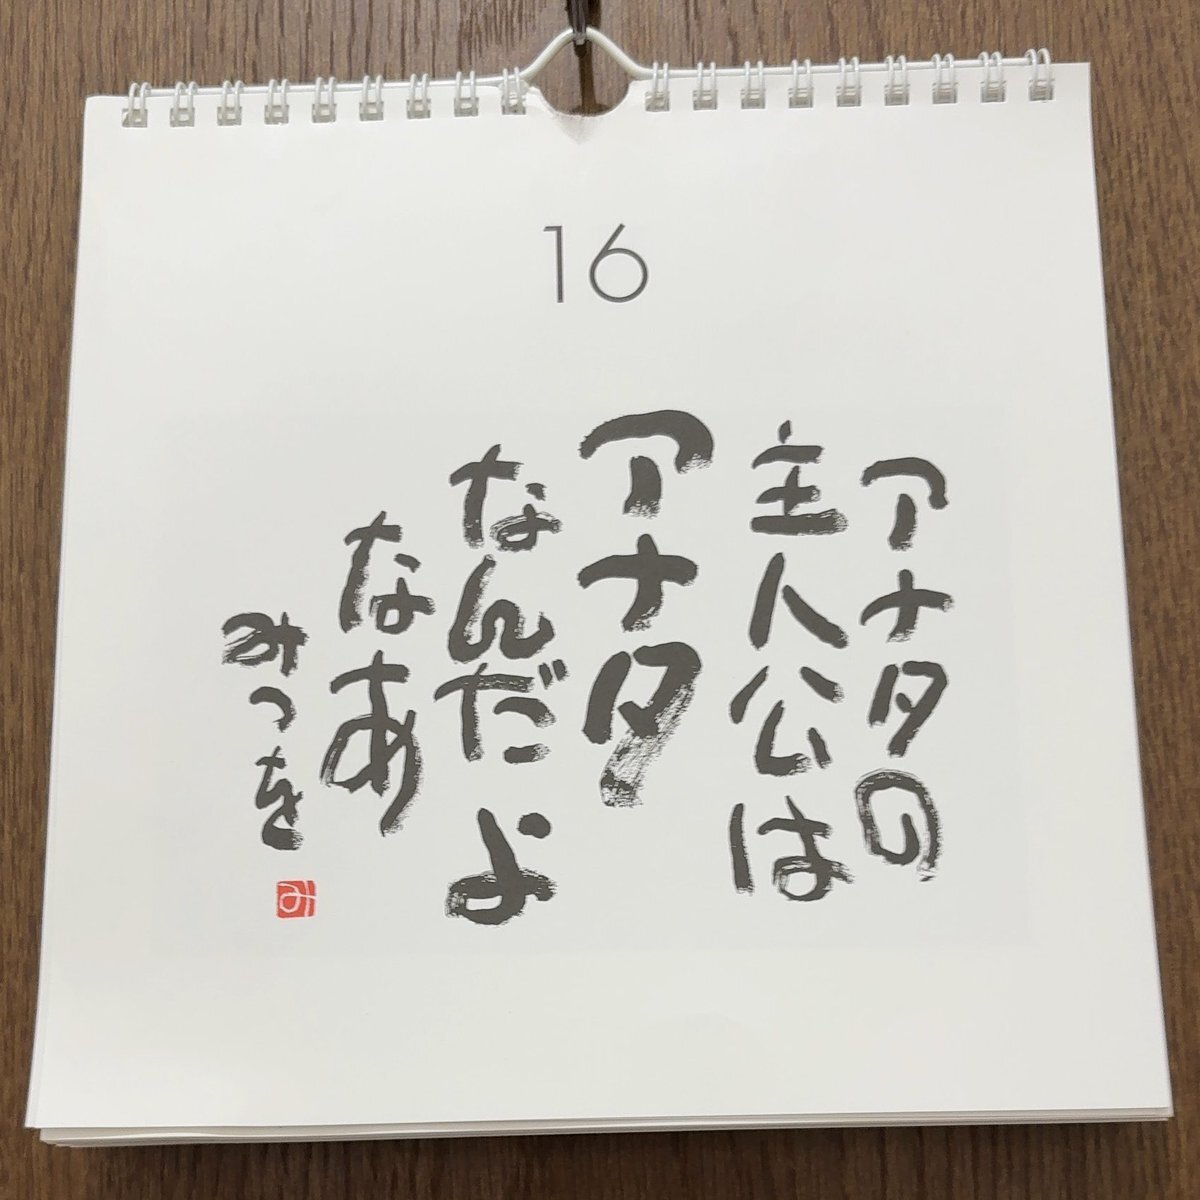 16
アナタの
主人公は
アナタ
なんだよ
なあ
みつを
み